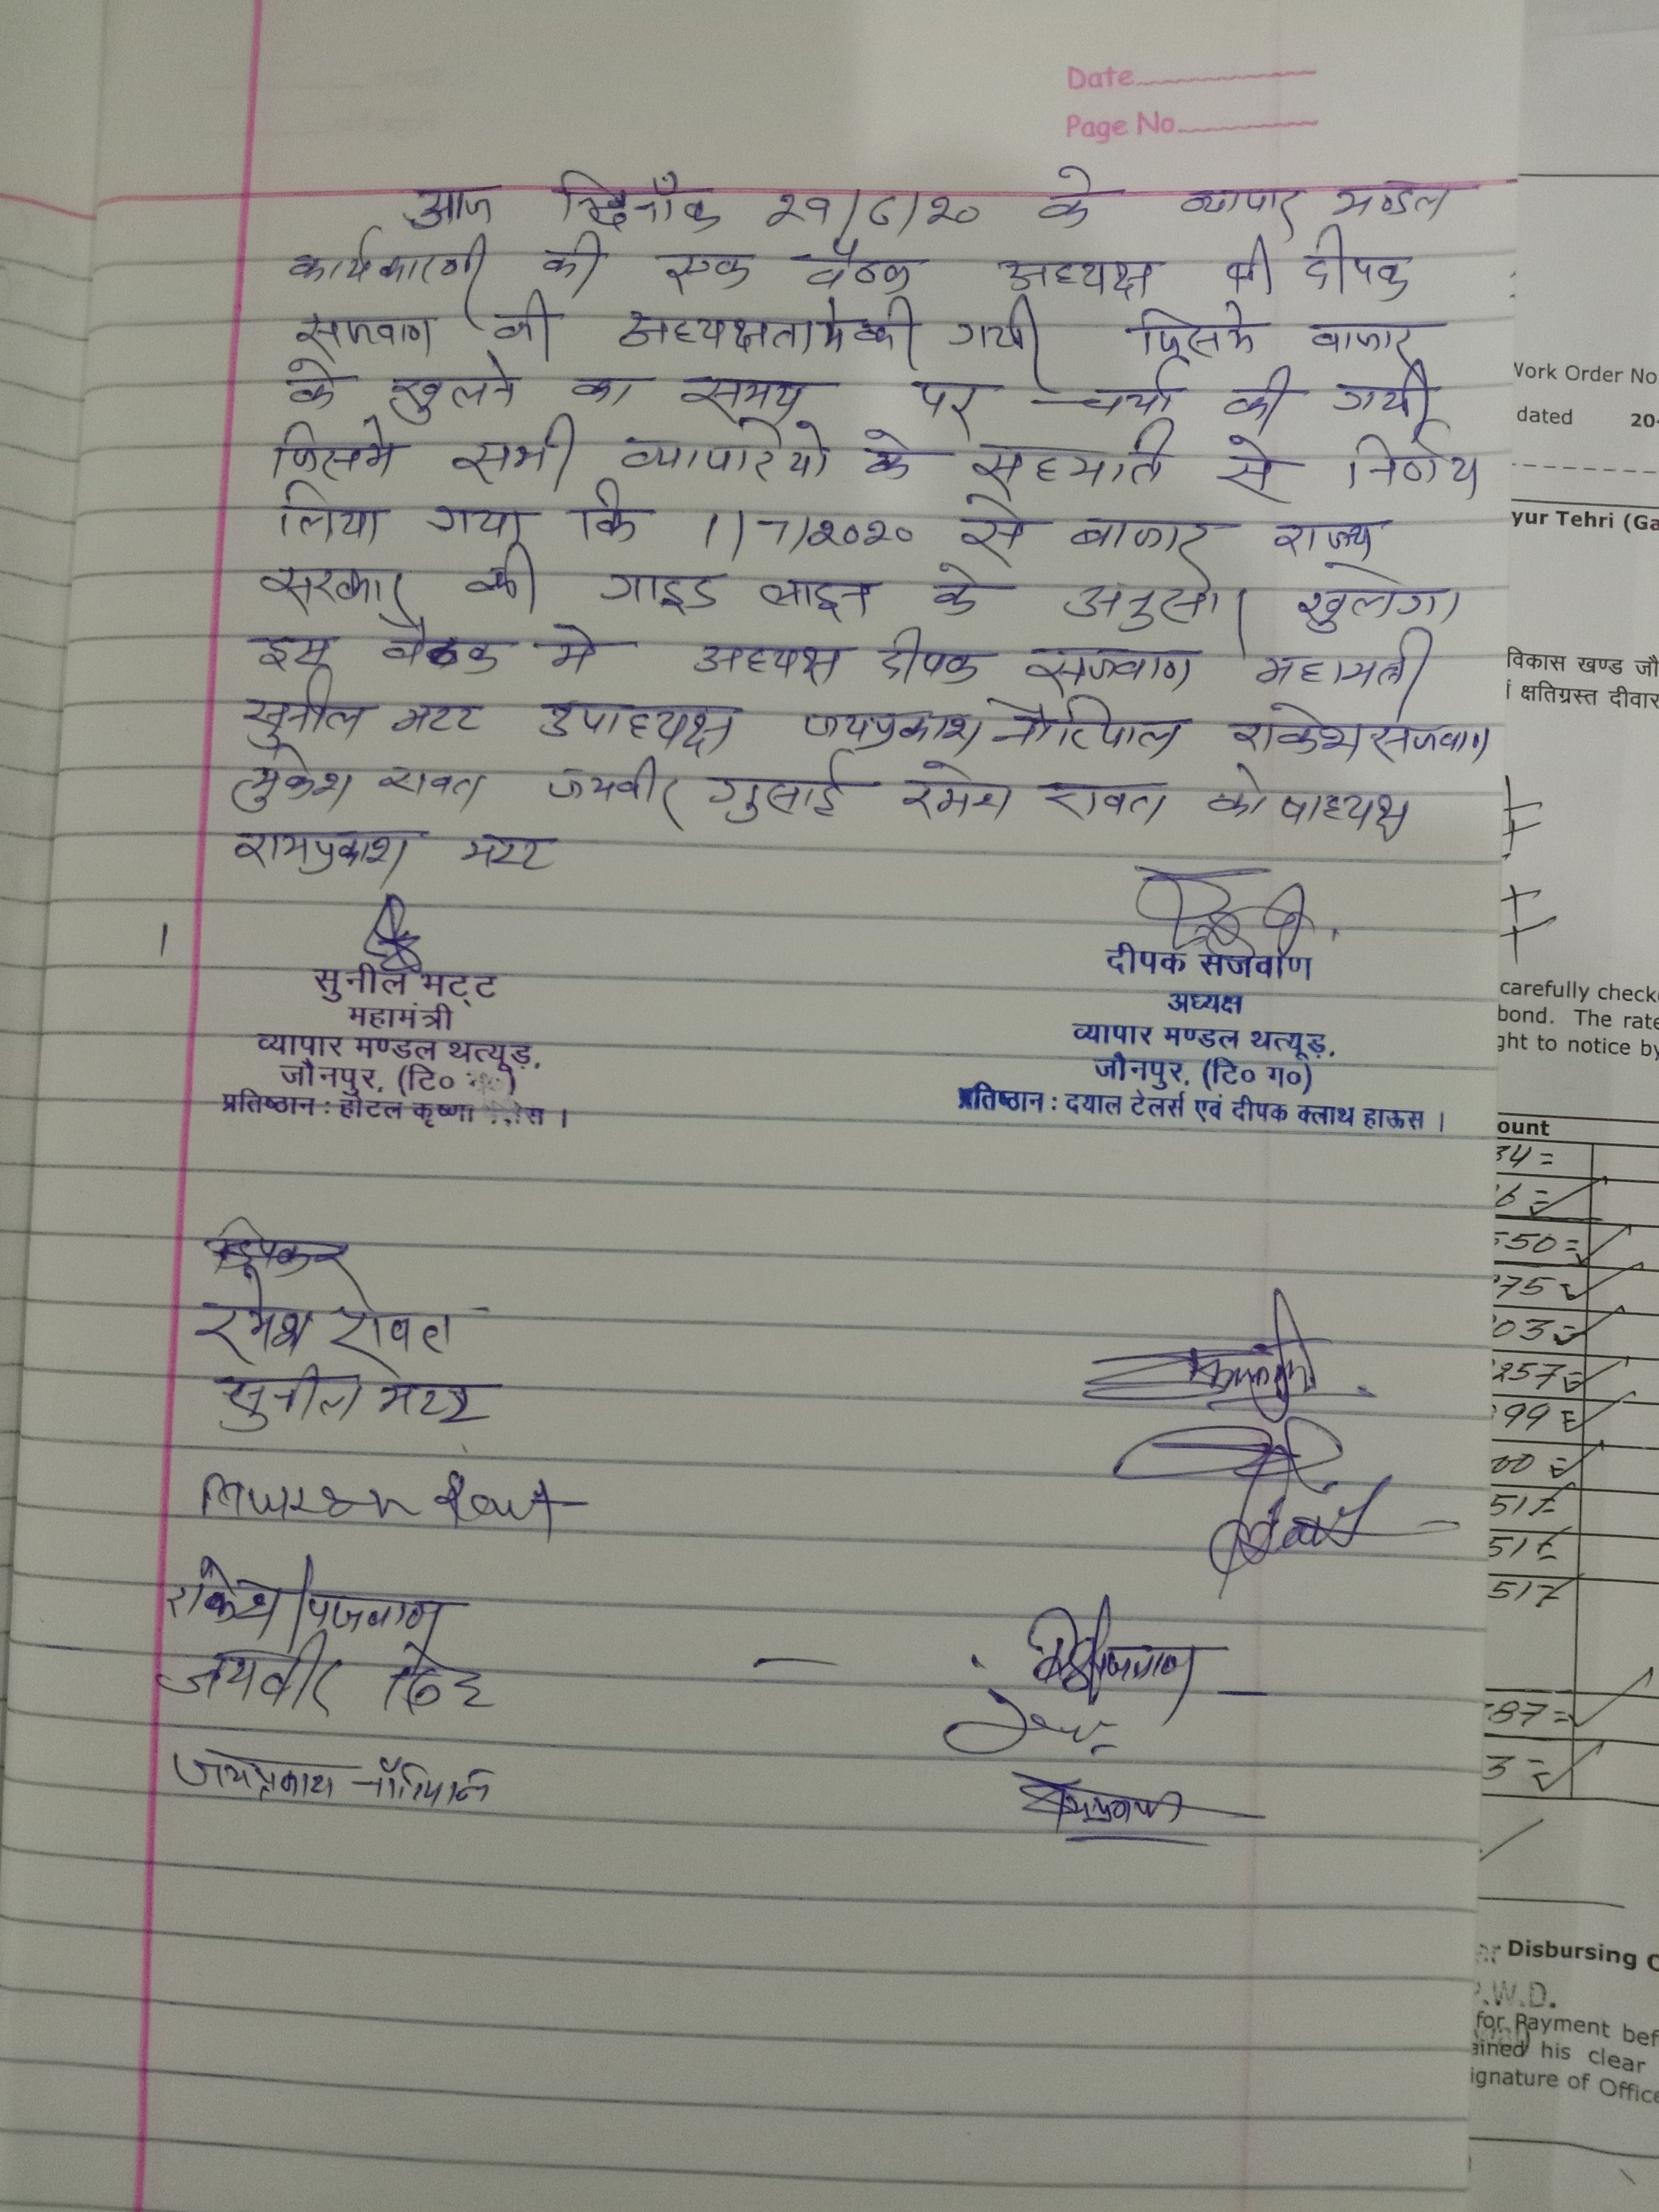 Date
Page No.
आज दिनाँक २९/६/२० के व्यापार मण्डल
कार्यकारणी की एक बैठक अध्यक्ष श्री दीपक
सजवाण की अध्यक्षता मे की गयी जिसमे बाजार
के खुलने का समय पर चर्चा की गयी
जिसमे सभी व्यापारियो के सहमति से निर्णय
लिया गया कि 1/7/२०२० से बाजार राज्य
सरकार की गाइड लाइन के अनुसार खुलेगा
इस बैठक मे अध्यक्ष दीपक सजवाण महामंत्री
सुनील भटट उपाध्यक्ष जयप्रकाश नौटियाल राकेश सजवाण
मुकेश रावत जयवीर गुसाई रमेश रावत कोषाध्यक्ष
रामप्रकाश भटट
सुनील भट्ट
महामंत्री
व्यापार मण्डल थत्यूड़,
जौनपुर, (टि०
प्रतिष्ठान : होटल कृष्णा
दीपक सजवाण
अध्यक्ष
व्यापार मण्डल थत्यूड़,
जौनपुर, (टि० ग०)
प्रतिष्ठान : दयाल टेलर्स एवं दीपक क्लाथ हाऊस ।
रमेश रावत
सुनील भटट
राकेश सजवाण
जयवीर सिंह
जयप्रकाश नौटियाल
Work Order No
dated 20-
yur Tehri (Ga
विकास खण्ड जौ
क्षतिग्रस्त दीवार
carefully check
bond. The rate
ght to notice by
ount
34 =
6 =
550 =
75
03
257
99
00
517
517
517
87 =
3 =
Disbursing O
P.W.D.
for Payment bef
ained his clear
ignature of Office